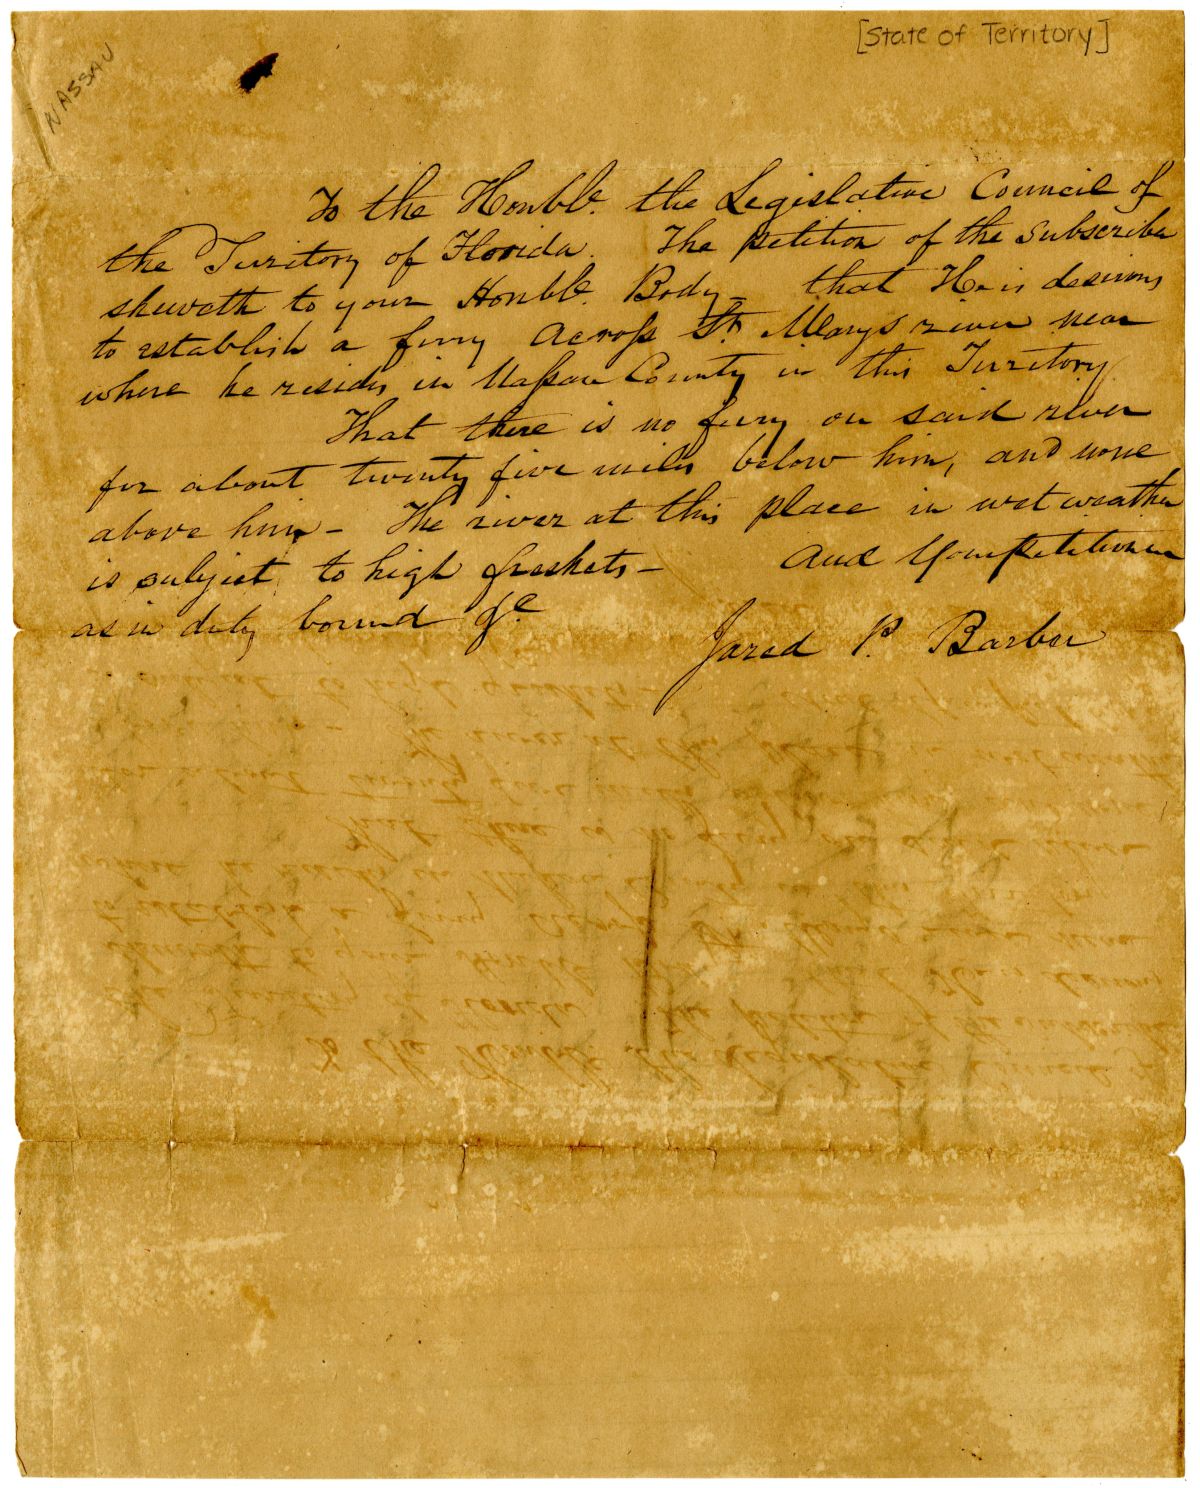 [State of Territory]
NASSAU
To the Honble. the Legislative Council of
the Territory of Florida. The petition of the Subscriber
sheweth to your Honble. Body – that He is desirous
to establish a ferry across St. Marys river near
where he resides in Nassau County in this Territory.
That there is no ferry on said river
for about twenty five miles below him, and none
above him – The river at this place in wet weather
is subject to high freshets – And your petitioner
as in duty bound &c
Jared P. Barber